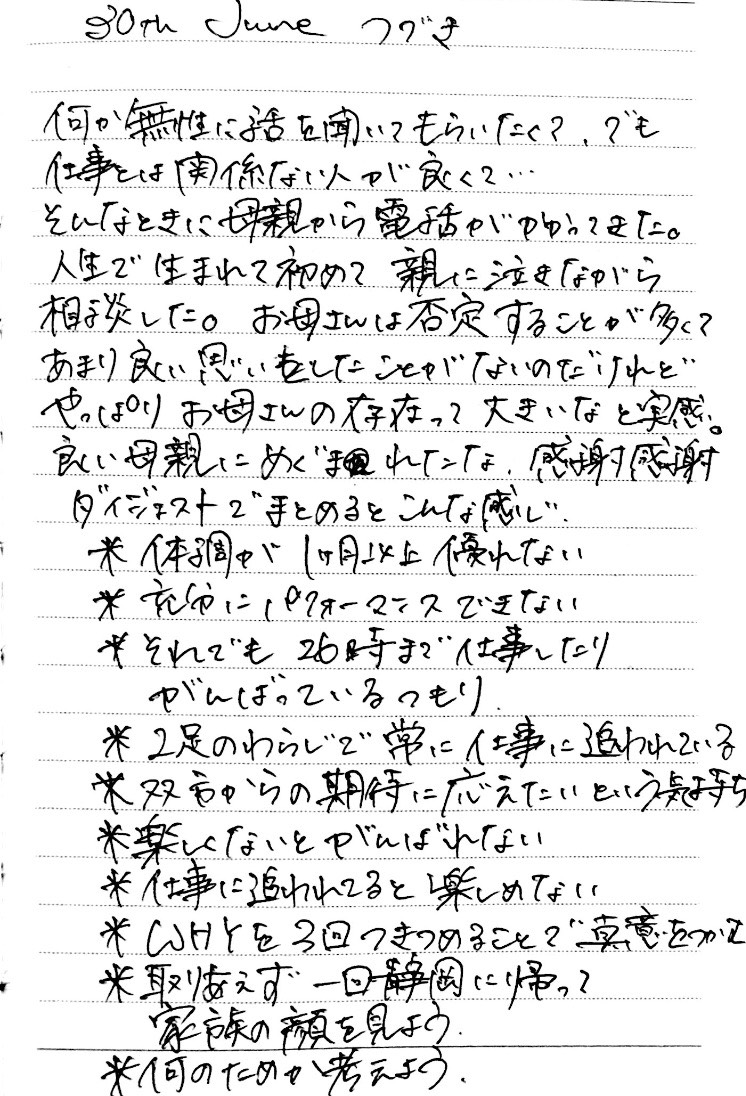 30th June つづき
何か無性に話を聞いてもらいたくて、でも
仕事とは関係ない人が良くて…
そんなときに母親から電話がかかってきた。
人生で生まれて初めて親に泣きながら
相談した。お母さんは否定することが多くて
あまり良い思いをしたことがないのだけれど
やっぱりお母さんの存在って大きいなと実感。
良い母親にめぐまれたな、感謝感謝
ダイジェストでまとめるとこんな感じ。
＊体調が1ヶ月以上優れない
＊充分にパフォーマンスできない
＊それでも26時まで仕事したり
がんばっているつもり．
＊2足のわらじで常に仕事に追われている
＊双方からの期待に応えたいという気持ち
＊楽しくないとがんばれない
＊仕事に追われてると楽しめない
＊WHYを3回つきつめることで真意をつかむ
＊取りあえず一回静岡に帰って
家族の顔を見よう．
＊何のためか考えよう．